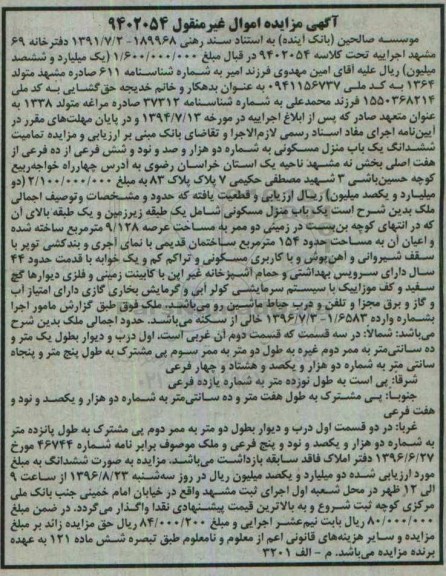 آگهی مزایده اموال غیرمنقول ۹۴۰۲۰۵۴
موسسه صالحین (بانک آینده) به استناد سند رهنی ۱۸۹۹۶۸-۱۳۹۱/۷/۳ دفترخانه ۶۹
مشهد اجراییه تحت کلاسه ۹۴۰۲۰۵۴ در قبال مبلغ ۱/۶۰۰/۰۰۰/۰۰۰ (یک میلیارد و ششصد
میلیون) ریال علیه آقای امین مهدوی فرزند امیر به شماره شناسنامه ۶۱۱ صادره مشهد متولد
۱۳۶۴ به کد ملی ۰۹۴۱۱۵۶۷۳۷ به عنوان بدهکار و خانم خدیجه حق‌گشایی به کد ملی
۱۵۵۰۳۶۸۲۱۴ فرزند محمدعلی به شماره شناسنامه ۳۷۳۱۲ صادره مراغه متولد ۱۳۳۸ به
عنوان متعهد صادر که پس از ابلاغ اجراییه در مورخه ۱۳۹۴/۷/۱۳ و در پایان مهلت‌های مقرر در
آیین‌نامه اجرای مفاد اسناد رسمی لازم‌الاجرا و تقاضای بانک مبنی بر ارزیابی و مزایده تمامیت
ششدانگ یک باب منزل مسکونی به شماره دو هزار و صد و نود و شش فرعی از ده فرعی از
هفت اصلی بخش نه مشهد ناحیه یک استان خراسان رضوی به آدرس چهارراه خواجه‌ربیع
کوچه حسین‌باشی ۳ شهید مصطفی حکیمی ۷ پلاک پلاک ۸۳ به مبلغ ۲/۱۰۰/۰۰۰/۰۰۰ (دو
میلیارد و یکصد میلیون) ریال ارزیابی و قطعیت یافته که حدود و مشخصات و توصیف اجمالی
ملک بدین شرح است یک باب منزل مسکونی شامل یک طبقه زیرزمین و یک طبقه بالای آن
که در انتهای کوچه بن‌بست در زمینی دو ممر به مساحت عرصه ۹/۱۲۸ مترمربع ساخته شده
و اعیان آن به مساحت حدود ۱۵۴ مترمربع ساختمان قدیمی با نمای آجری و بندکشی توپر با
سقف شیروانی و آهن‌پوش و با کاربری مسکونی و تراکم کم و یک خوابه با قدمت حدود ۴۴
سال دارای سرویس بهداشتی و حمام آشپزخانه غیر اپن با کابینت زمینی و فلزی دیوارها گچ
سفید و کف موزاییک با سیستم سرمایشی کولر آبی و گرمایش بخاری گازی دارای امتیاز آب
و گاز و برق مجزا و تلفن و درب حیاط ماشین رو می‌باشد. ملک فوق طبق گزارش مامور اجرا
بشماره وارده ۱/۶۵۸۳-۱۳۹۶/۷/۳ خالی از سکنه می‌باشد. حدود اجمالی ملک بدین شرح
می‌باشد: شمالا: در سه قسمت که قسمت دوم آن غربی است، اول درب و دیوار بطول یک متر و
ده سانتی‌متر به ممر دوم غیره به طول دو متر به ممر سوم پی مشترک به طول پنج متر و پنجاه
سانتی متر به شماره دو هزار و یکصد و هشتاد و چهار فرعی
شرقا: پی است به طول نوزده متر به شماره یازده فرعی
جنوبا: پی مشترک به طول هفت متر و ده سانتی‌متر به شماره دو هزار و یکصد و نود و
هفت فرعی
غربا: در دو قسمت اول درب و دیوار بطول دو متر به ممر دوم پی مشترک به طول پانزده متر
به شماره دو هزار و یکصد و نود و پنج فرعی و ملک موصوف برابر نامه شماره ۴۶۷۴۴ مورخ
۱۳۹۶/۶/۲۷ دفتر املاک فاقد سابقه بازداشت می‌باشد. مزایده به صورت ششدانگ به مبلغ
مورد ارزیابی شده دو میلیارد و یکصد میلیون ریال در روز سه‌شنبه ۱۳۹۶/۸/۲۳ از ساعت ۹
الی ۱۲ ظهر در محل شعبه اول اجرای ثبت مشهد واقع در خیابان امام خمینی جنب بانک ملی
مرکزی کوچه ثبت شروع و به بالاترین قیمت پیشنهادی نقدا واگذار می‌گردد. در ضمن مبلغ
۸۰/۰۰۰/۰۰۰ ریال بابت نیم‌عشر اجرایی و مبلغ ۸۴/۰۰۰/۲۰۰ ریال حق مزایده زائد بر مبلغ
مزایده و سایر هزینه‌های قانونی اعم از معلوم و نامعلوم طبق تبصره شش ماده ۱۲۱ به عهده
برنده مزایده می‌باشد. م - الف ۳۲۰۱